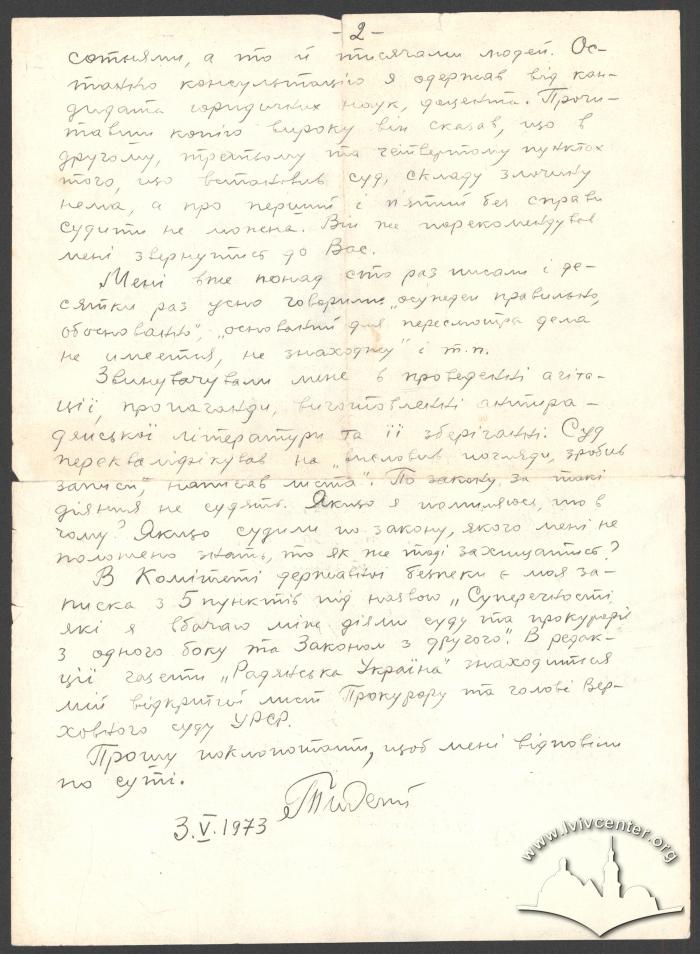 - 2 -
сотнями, а то й тисячами людей. Ос-
танню консультацію я одержав від кан-
дидата юридичних наук, доцента. Прочи-
тавши копію вироку він сказав, що в
другому, третьому та четвертому пунктах
того, що встановив суд, складу злочину
нема, а про перший і п'ятий без справи
судити не можна. Він же порекомендував
мені звернутись до Вас.
Мені вже понад сто раз писали і де-
сятки раз усно говорили „осужден правильно,
обосновано", „оснований для пересмотра дела
не имеется, не знаходжу" і т.п.
Звинувачували мене в проведенні агіта-
ції, пропаганди, виготовленні антира-
дянської літератури та її зберіганні. Суд
перекваліфікував на „висловив погляди, зробив
записи", „написав листа". По закону за такі
діяння не судять. Якщо я помиляюся, то в
чому? Якщо судили по закону, якого мені не
положено знать, то як же тоді захищатись?
В Комітеті державної безпеки є моя за-
писка з 5 пунктів під назвою „Суперечності,
які я вбачаю між діями суду та прокурорії
з одного боку та Законом з другого". В редак-
ції газети „Радянська Україна" знаходиться
мій відкритий лист Прокурору та голові Вер-
ховного суду УРСР.
Прошу поклопотати, щоб мені відповіли
по суті.
3.V.1973
www.lvivcenter.org